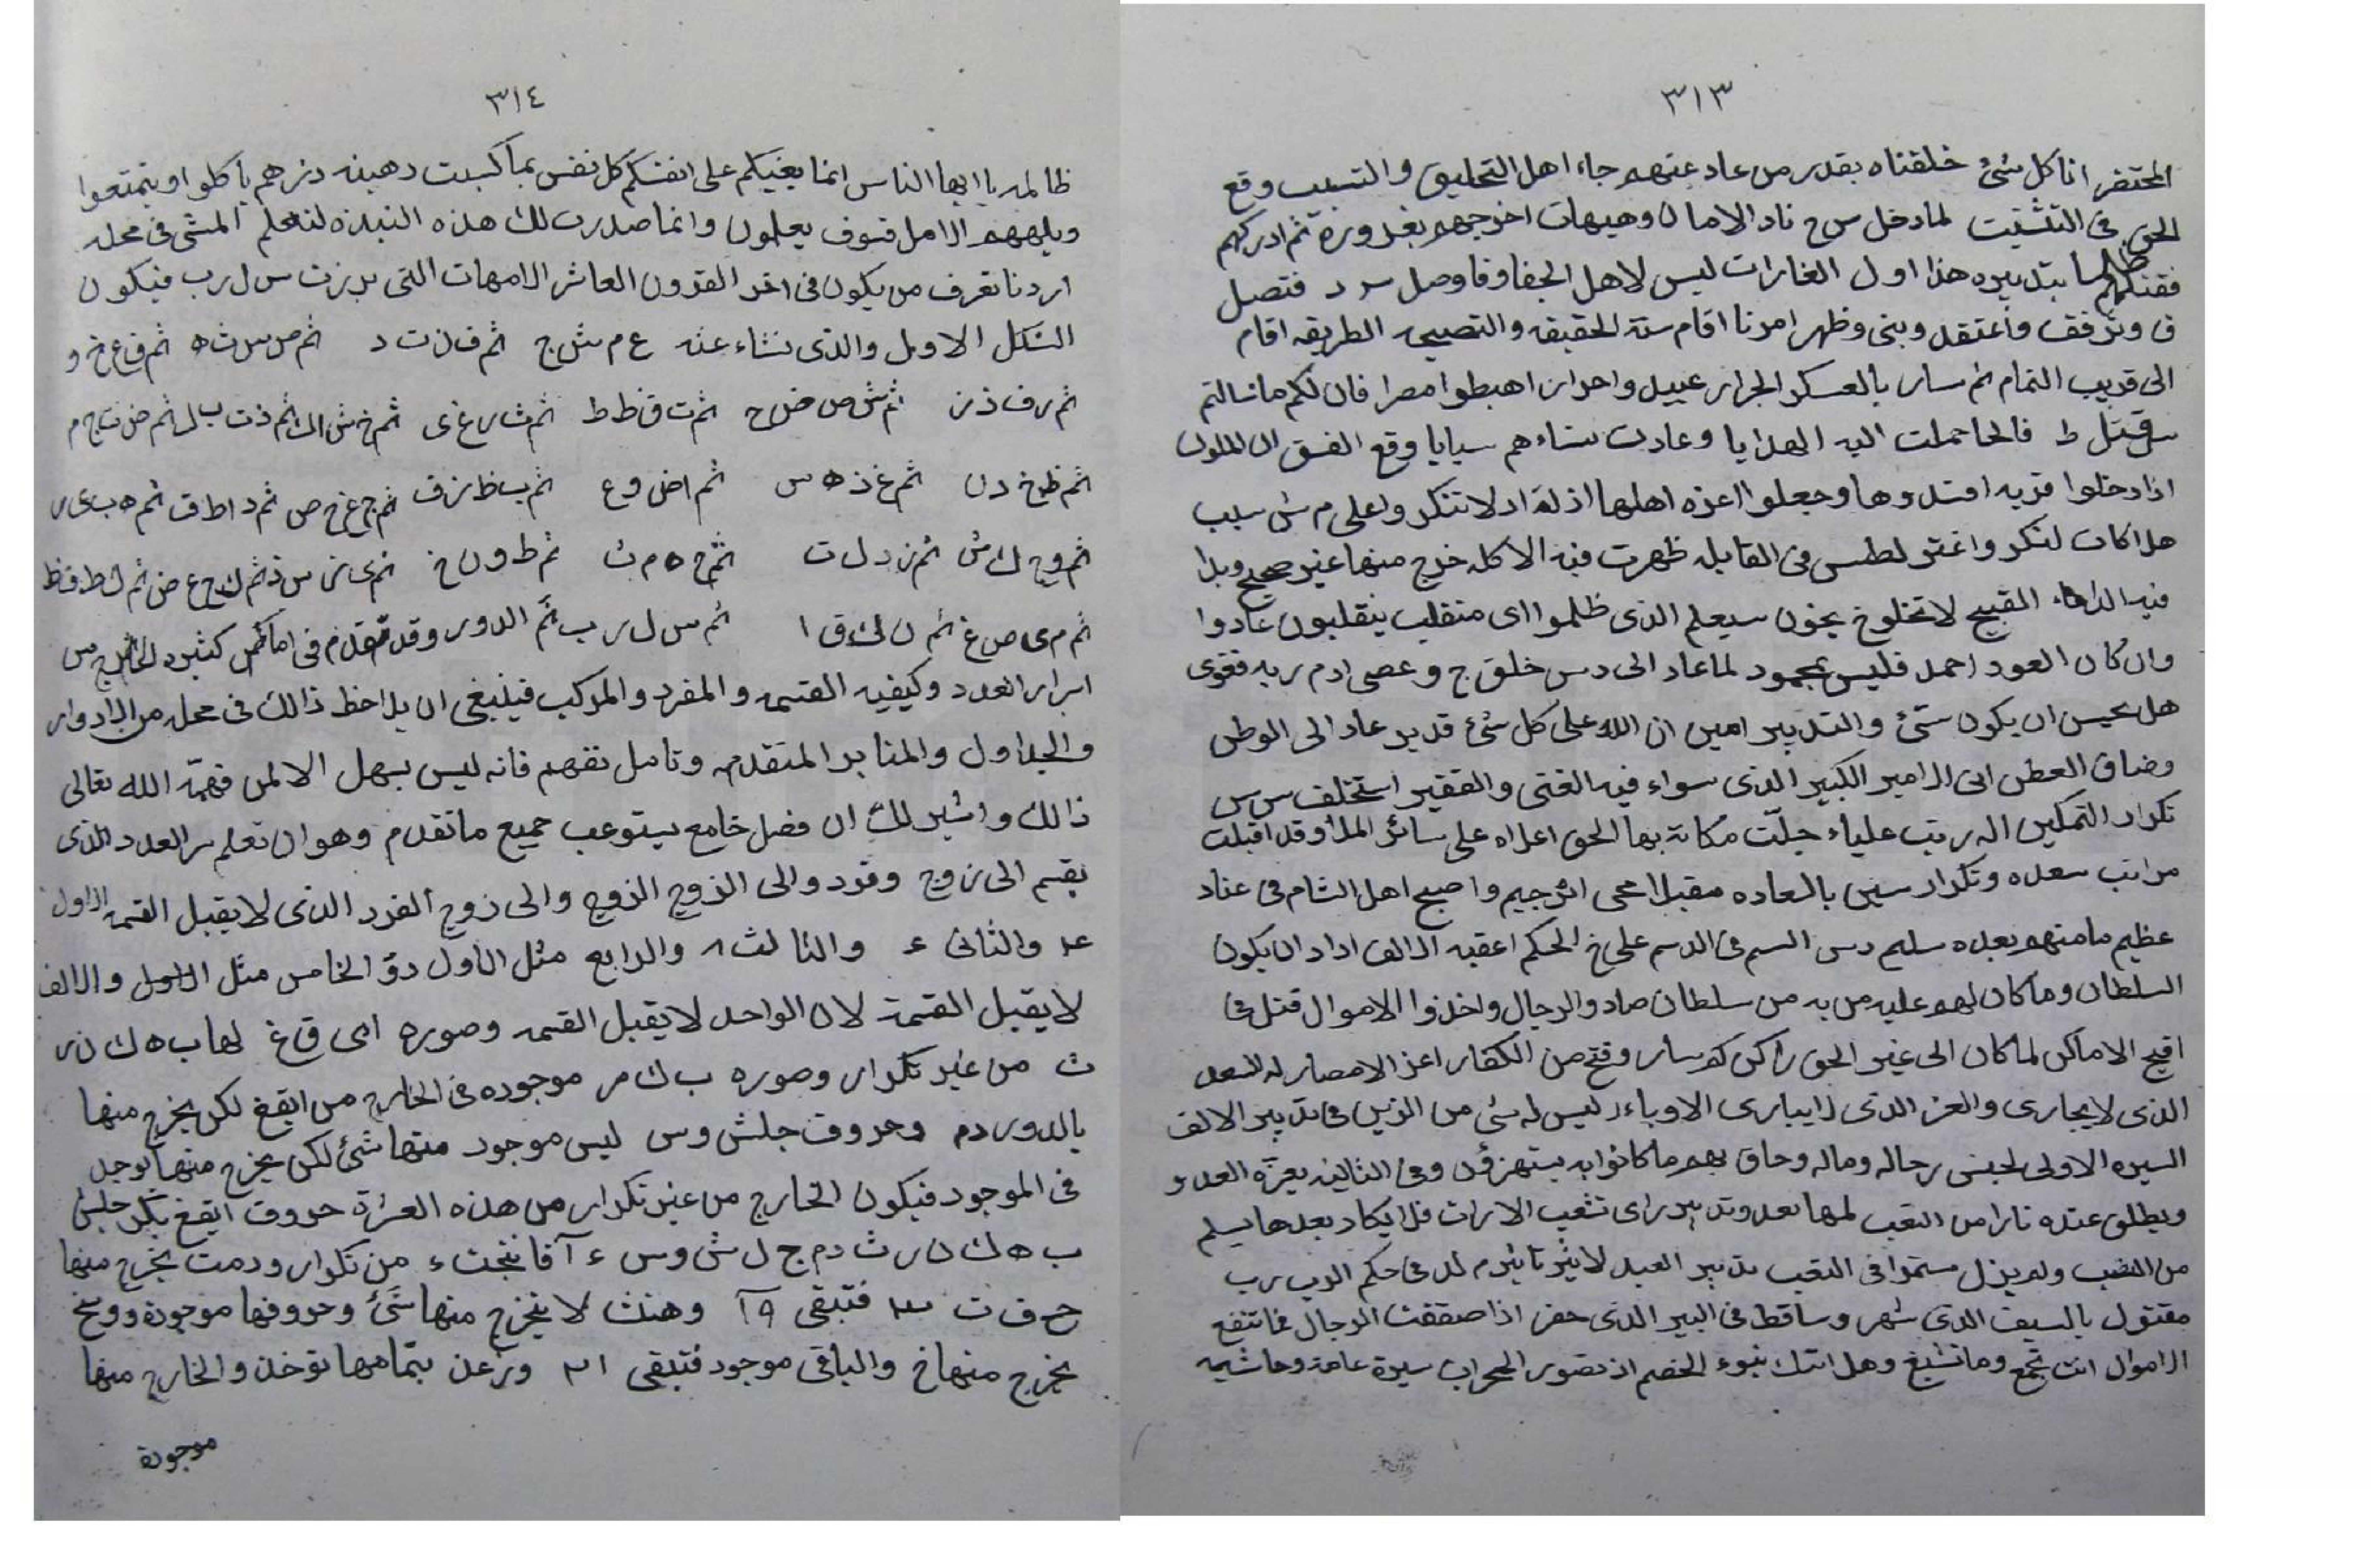 ٣١٣
المحتضر اناكل شئ خلقناه بقدر من عاد عنهم جاء اهل التحليق والتسبب وقع
الحق فى التشتيت لما دخل س ح ناد الامان وهيهات اخرجهم بغدوره ثم ادركهم
بتدبيره هذا اول الغارات ليس لاهل الجفا وفا وصل س د فتصل
ق وترفقت واعتقد وبنى وظهر امرنا اقام ستة الحقيقه والتصيحه الطريقه اقام
الى قريب التمام ثم سار بالعسكر الجرار عبيد واحرار اهبطوا مصرا فان لكم ماسالتم
ط فالحا حملت اليه الهدايا وعادت نساءهم سبايا وقع الفسق ان الملوك
اذا دخلوا قريه افسدوها وجعلوا اعزه اهلها اذلة اد لا تنكر ولعلى م ش سبب
هلاكات لنكر واغتر لطس فى القابله ظهرت فيه الاكله خرج منها غير صحيح وبدا
فيه القبيح لا تخلوخ يخون سيعلم الذى ظلموا اى منقلب ينقلبون عادوا
وان كان العود احمد فليس بمحمود لما عاد الى دس خلق ج وعصى ادم ربه فغوى
هل يحسن ان يكون شئ والتدبير امين ان الله على كل شئ قدير عاد الى الوطن
وضاق العطن اتى الامير الكبير الذى سواء فيه الغنى والفقير استخلف س س
تكرار التمكين اله رتب علياء جلّت مكانة بها الحق اعلاه على سائر الملا وقد اقبلت
مراتب سعده وتكرار سنين بالسعاده مقبلا محى الرجيم واصبح اهل الشام فى عناد
عظيم ما منهم بعده سليم دس السم فى الدسم على خ الحكم اعقبه الالف اداد ان يكون
السلطان وما كان لهم عليه من به من سلطان صاد والرجال واخذوا الاموال قتل فى
اقبح الاماكن لما كان الى غير الحق راكن كم سار وفتح من الكفار اعز الامصار له السعد
الذى لا يجارى والعز الذى لا يبارى الاوباء ليس له شئ من الزين فى تدبير الالف
السيره الاولى لحبنى رجاله وماله وحاق بهم ماكانوا به يستهزؤن وفى الثانيه بعزه العدو
ويطلق عنده نارا من التعب لمها بعد وتدبير راى تشعب الارات فلا يكاد بعدها يسلم
من النصب ولم يزل مستمرا فى التعب تدبير العبد لا يثر تاثيرم لد فى حكم الرب رب
مقتول بالسيف الذى شهر وساقط فى البير الذى حفر اذا صفقت الرجال فما تنفع
الاموال انت تجمع وما تشبع وهل اتيك نبوء الخصم اذ تصور المحراب سيرة عامة وحاشيه
٣١٤
ظالمه يا ايها الناس انما بغيكم على انفسكم كل نفس بما كسبت رهينه درهم ياكلوا ويتمتعوا
ويلههم الامل فسوف يعلمون وانما صدرت لك هذه النبذه لتعلم المشى فى محله
اردنا تعرف من يكون فى اخر القرون العاشر الامهات التى برزت س ل رب فيكون
الشكل الاول والذى نشاء عنه ع م ش ج ثم ف ن ت د ثم ص س ث ه ثم ق ع خ و
ثم ر ف ذ ز ثم ش ص ض ح ثم ت ق ظ ط ثم ث ر غ ى ثم خ ش ا ك ثم ذ ت ب ل ثم ض ث ج م
ثم ظ خ د ن ثم غ ذ ه س ثم ا ض و ع ثم ب ظ ز ف ثم ج غ ح ص ثم د ا ط ق ثم ه ب ى ر
ثم و ج ك ش ثم ز د ل ت ثم ح ه م ث ثم ط و ن خ ثم ى ز س ذ ثم ك ح ع ض ثم ل ط ف ظ
ثم م ى ص غ ثم ن ك ق ا ثم س ل ر ب ثم الدور وقد تقدم فى اماكن كثيره الخارج من
اسرار العدد وكيفيه القسمه والمفرد والمركب فينبغى ان يلاحظ ذالك فى محله من الادوار
والجداول والمنابر المتقدمه وتامل تفهم فانه ليس بسهل الا لمن فهمّه الله تعالى
ذالك واشير لك ان فصل خامع يستوعب جميع ماتقدم وهو ان تعلم سر العدد الذى
يقسم الى زوج وفرد والى الزوج الزوج والى زوج الفرد الذى لا يقبل القسمه الاول
والثانى والثالث والرابع مثل الاول دق الخامس مثل الاول والالف
لا يقبل القسمة لان الواحد لا يقبل القسمه وصوره اى ق غ لها ب ه ك ن ر
ث من غير تكرار وصوره ب ك ر موجوده فى الخارج من ايقغ لكن يخرج منها
بالدور دم وحروف جلش وس ليس موجود منها شئ لكن يخرج منها توجد
فى الموجود فيكون الخارج من غير تكرار من هذه العشرة حروف ايقغ بكر جلش
ب ه ك ن ر ث د م ج ل ش و س من تكرار ودمت يخرج منها
ح ف ت فتبقى وهنث لا يخرج منها شئ وحروفها موجودة ووسخ
يخرج منها خ والباقى موجود فتبقى وزعذ بتمامها توخذ والخارج منها
موجودة